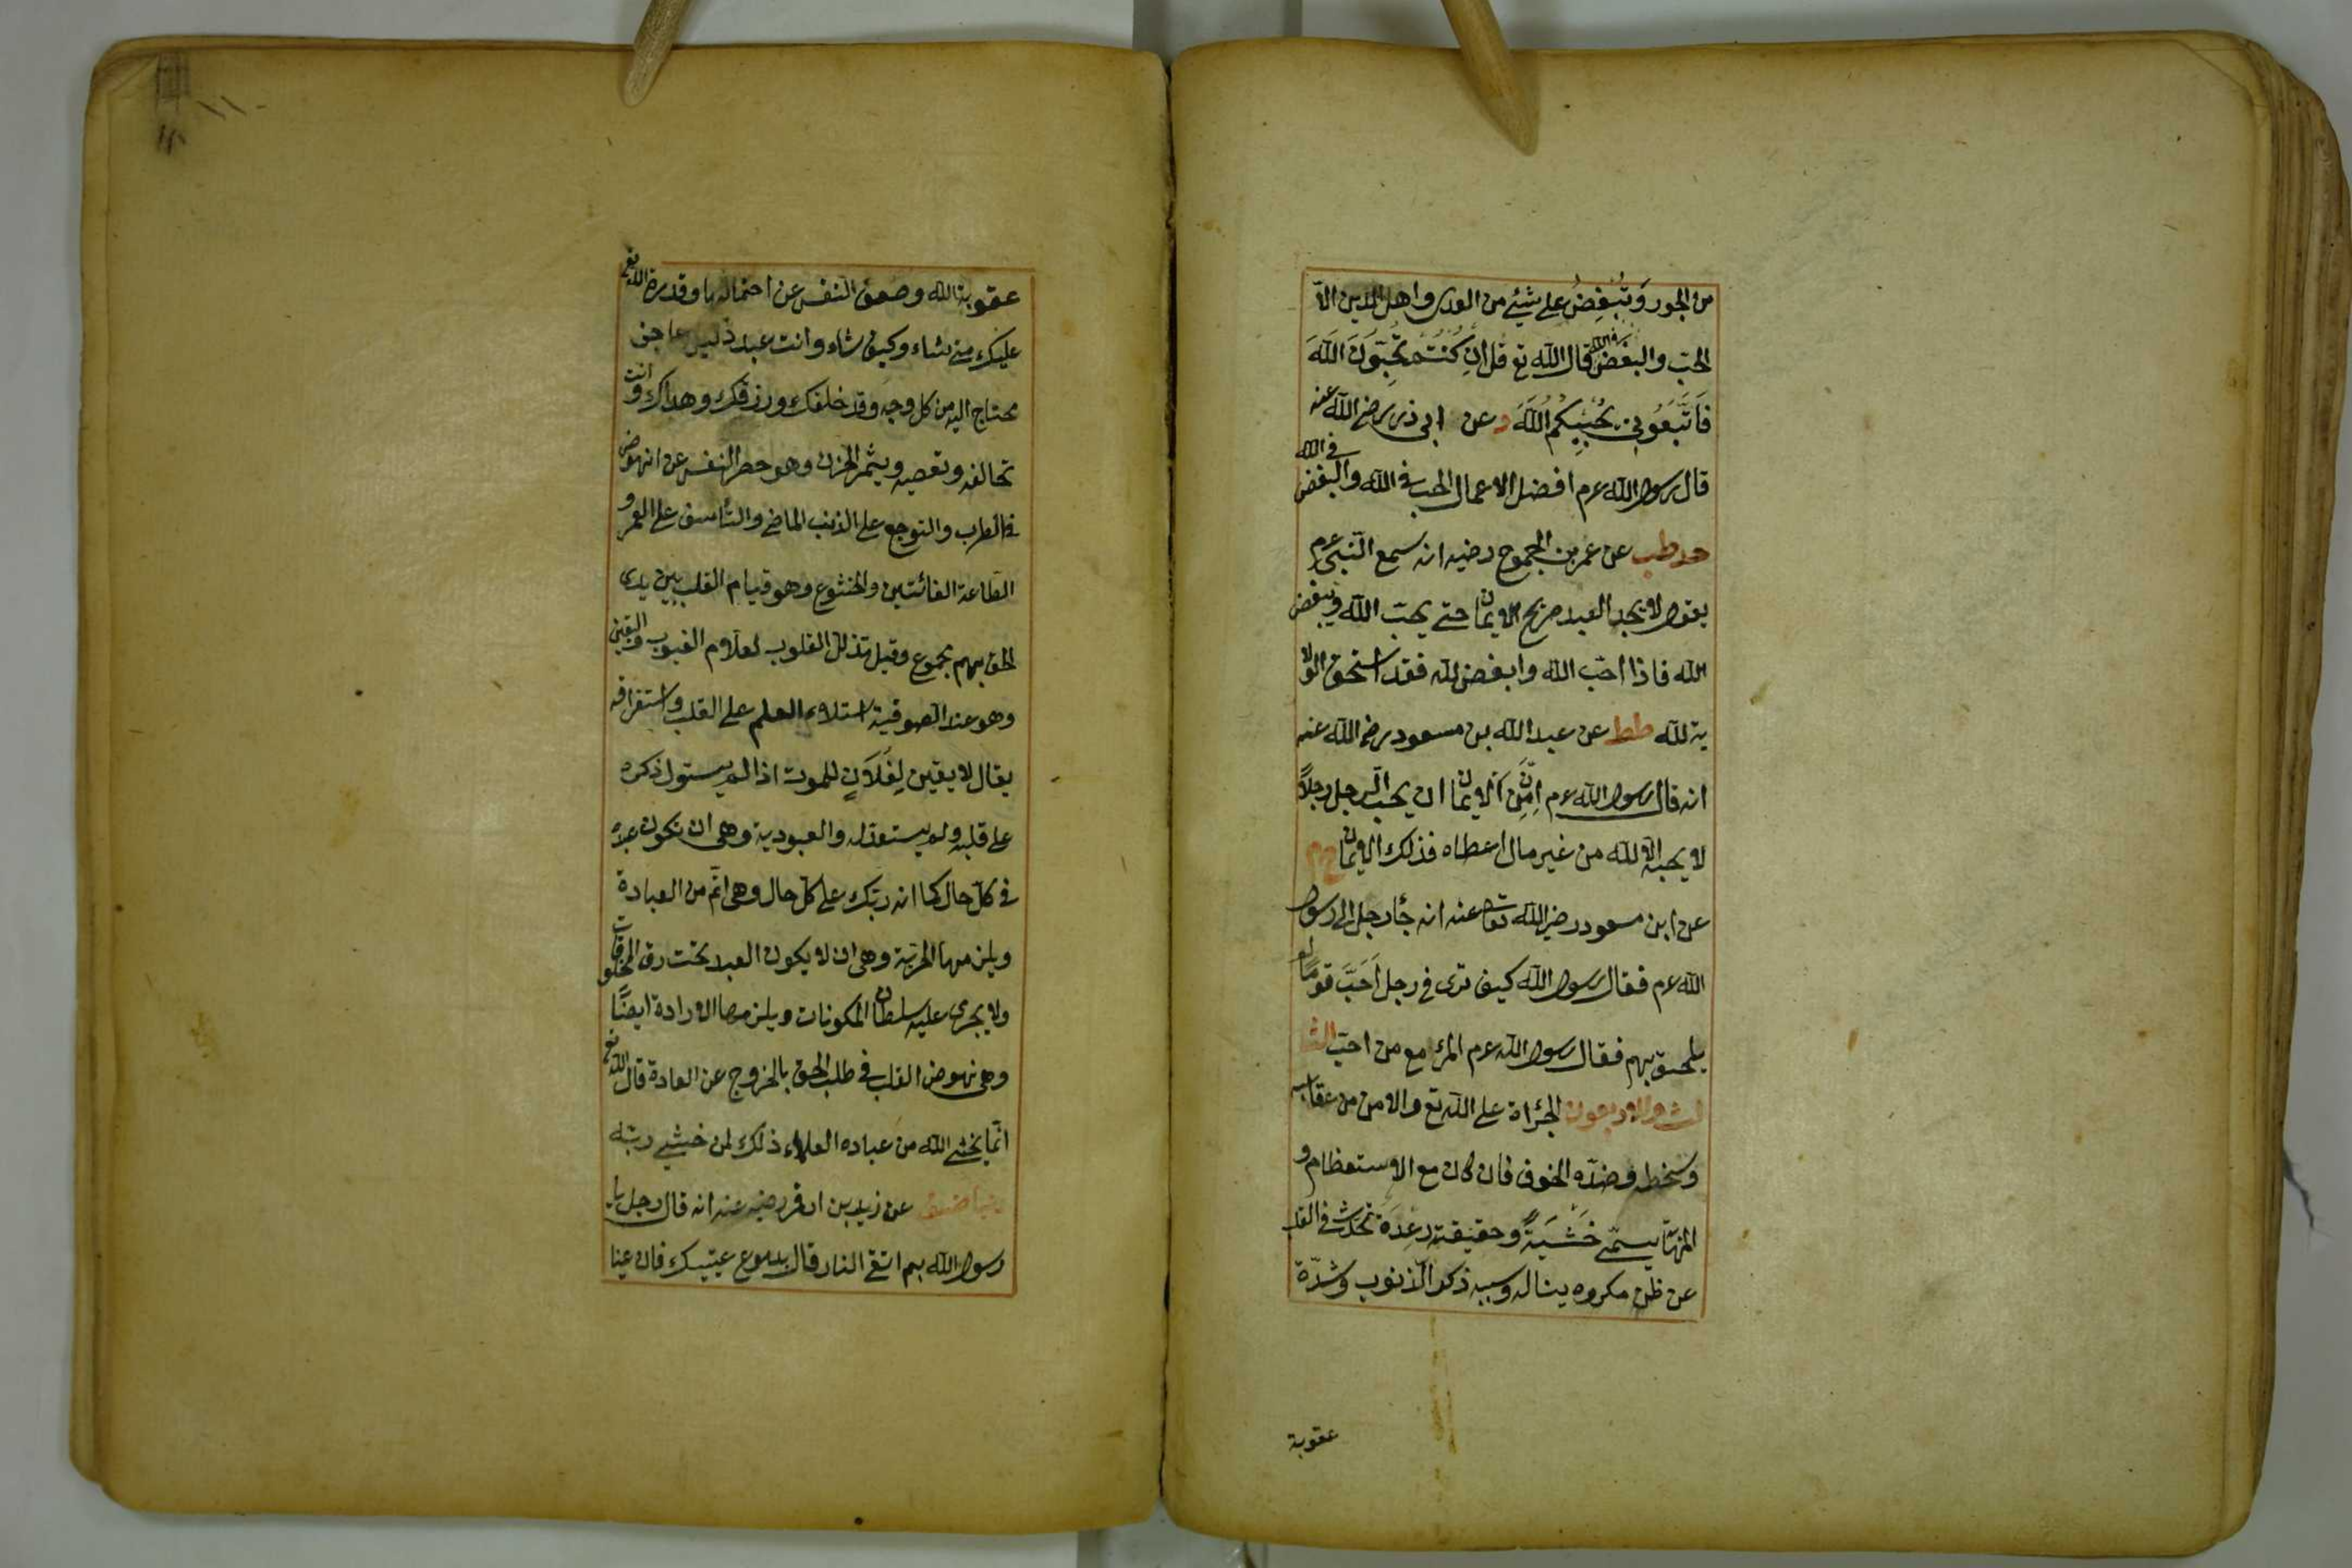 من الجور وتبغض على شيئ من العدل واهل الدين الا
الحبّ والبغض فى الله قال الله تع قل ان كنتم تحبّون الله
فاتّبعونى يحببكم الله وعن ابى ذر رضى الله عنه
قال رسول الله عرم افضل الاعمال الحب فى الله والبغض فى الله
حد طب عن عمر بن الجموح رضيه انه سمع النّبى عرم
يقول لا يجد العبد صريح الايمان حتى يحبّ الله ويبغض
الله فاذا احبّ الله وابغض لله فقد استحق الولا
ية لله طط عن عبد الله بن مسعود رضى الله عنه
انه قال رسول الله عرم انّ من الايمان ان يحبّ الرجل رجلاً
لا يحبه الا لله من غير مال اعطاه فذلك الايمان خ م
عن ابن مسعود رضى الله تعا عنه انه جأ رجل الى رسول
الله عرم فقال رسول الله كيف ترى فى رجل احبّ قومًا لم
يلحق بهم فقال رسول الله عرم المرئ مع من احبّ الثا
لث والاربعون الجرأة على الله تع والامن من عقابه
وسخطه وضدّه الخوف فان كان مع الاستعظام و
المهابة يسمّى خَشْيَةً وحقيقته رعدة تحدث فى القلب
عن ظن مكروه يناله وسببه ذكر الذنوب وشدّة
عقوبة
١١٠
عقوبة الله وضعف النفس عن احتمالها وقدرة الله تع
عليك متى شاء وكيف شاء وانت عبد ذليل عاجز
محتاج اليه من كل وجه وقد خلقك ورزقك وهداك وانت
تخالفه وتعصيه ويثمر الحزن وهو حصر النفس عن انهوض
فى الطرب والتوجع على الذنب الماضى والتأسف على العمر و
الطاعة الفائتين والخشوع وهو قيام القلب بين يدى
الحق بهم مجموع وقيل تذلل القلوب لعلام الغيوب واليقين
وهو عند الصوفية استلاء العلم على القلب واستغراقه
يقال لا يقين لفلان للموت اذا لم يستول ذكره
على قلبه ولم يستعدّ له والعبودية وهى ان تكون عبده
فى كلّ حال كما انه ربّك على كلّ حال وهى اتمّ من العبادة
ويلزمها الحرّية وهى ان لا يكون العبد تحت رق المخلوقات
ولا يجرى عليه سلطان المكونات ويلزمها الارادة ايضًا
وهى نهوض القلب فى طلب الحق بالخروج عن العادة قال الله تع
انّما يخشى الله من عباده العلماء ذلك لمن خشى ربّه
عن زيد بن ارقم رضيه عنه انه قال رجل يا
رسول الله بم اتقى النار قال بدموع عينيك فان عينا